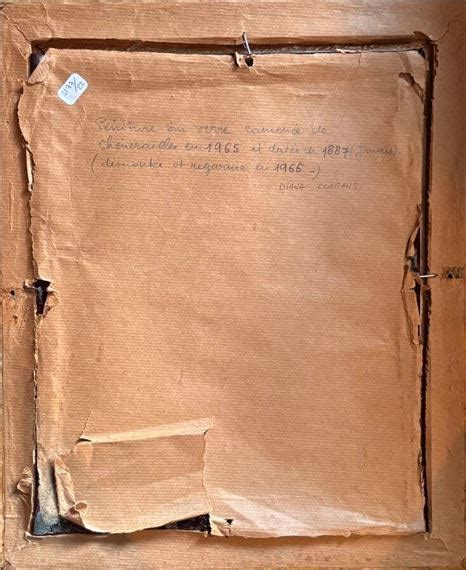 Peinture sur verre ramenée de
Chenerailles en 1965 et datée de 1887
(demontée et regarnie en 1966 -)
DIANA